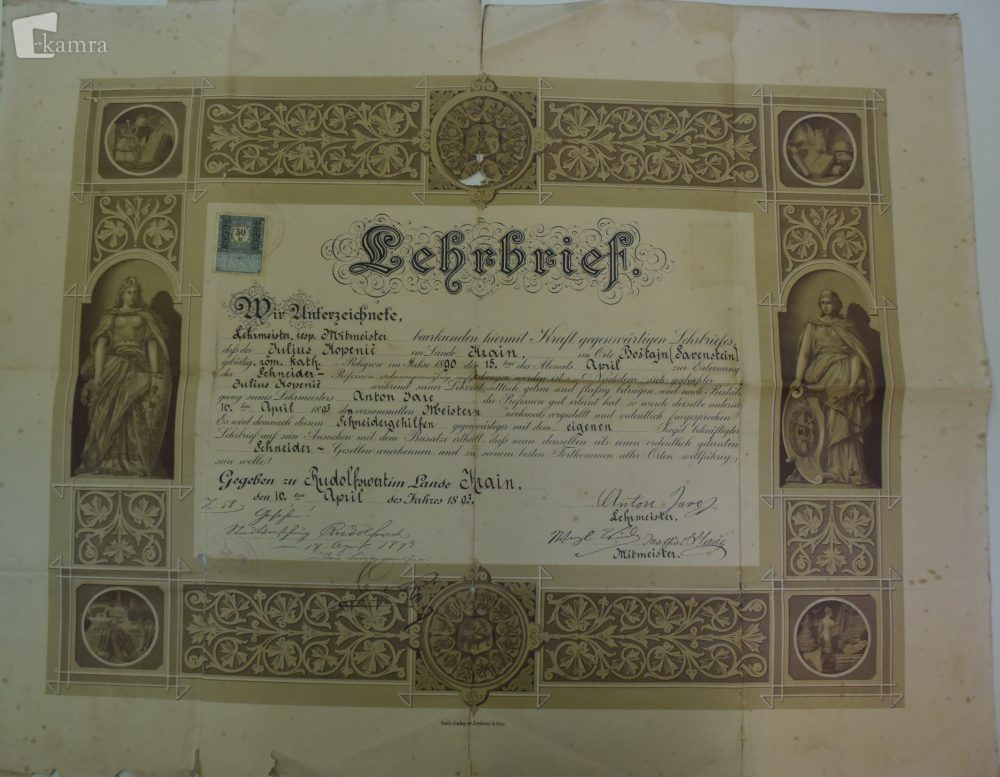 kamra
50
Lehrbrief.
Wir Unterzeichnete,
Lehrmeister, resp. Mitmeister beurkunden hiermit Kraft gegenwärtigen Lehrbriefes,
daß der Julius Kopenič im Lande Krain, im Orte Boštajn (Savenstein)
gebürtig, röm. kath. Religion im Jahre 1890 den 15. ten des Monats April zur Erlernung
der Schneider- Profession
Julius Kopenič während seiner Lehrzeit sittlich, getreu und fleißig betragen, und nach Bestäti-
gung seines Lehrmeisters Anton Jarc die Profession gut erlernt hat, so wurde derselbe unterm
10. ten April 1893 den versammelten Meistern nochmals vorgestellt und ordentlich freigesprochen.
Es wird demnach diesem Schneidergehilfen gegenwärtiger mit dem eigenen Siegel bekräftigter
Lehrbrief auf sein Ansuchen mit dem Beisatze ertheilt, daß man denselben als einen ordentlich gelernten
Schneider- Gesellen anerkennen, und zu seinem besten Fortkommen aller Orten willfährig
sein wolle.
Gegeben zu Rudolfswert im Lande Krain,
den 10. ten April des Jahres 1893.
Z. 58
Gesehen!
Rudolfswert
am 17. April 1893
Anton Jarc
Lehrmeister.
Mitmeister.